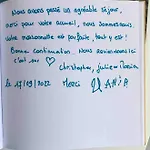 Nous avons passé un agréable séjour,
merci pour votre accueil, nous sommes ravis,
votre maisonnette est parfaite, tout y est!
Bonne continuation. Nous reviendrons ici
c'est sûr ♡
Christopher, Julie et
Le 17/09/2022 Merci